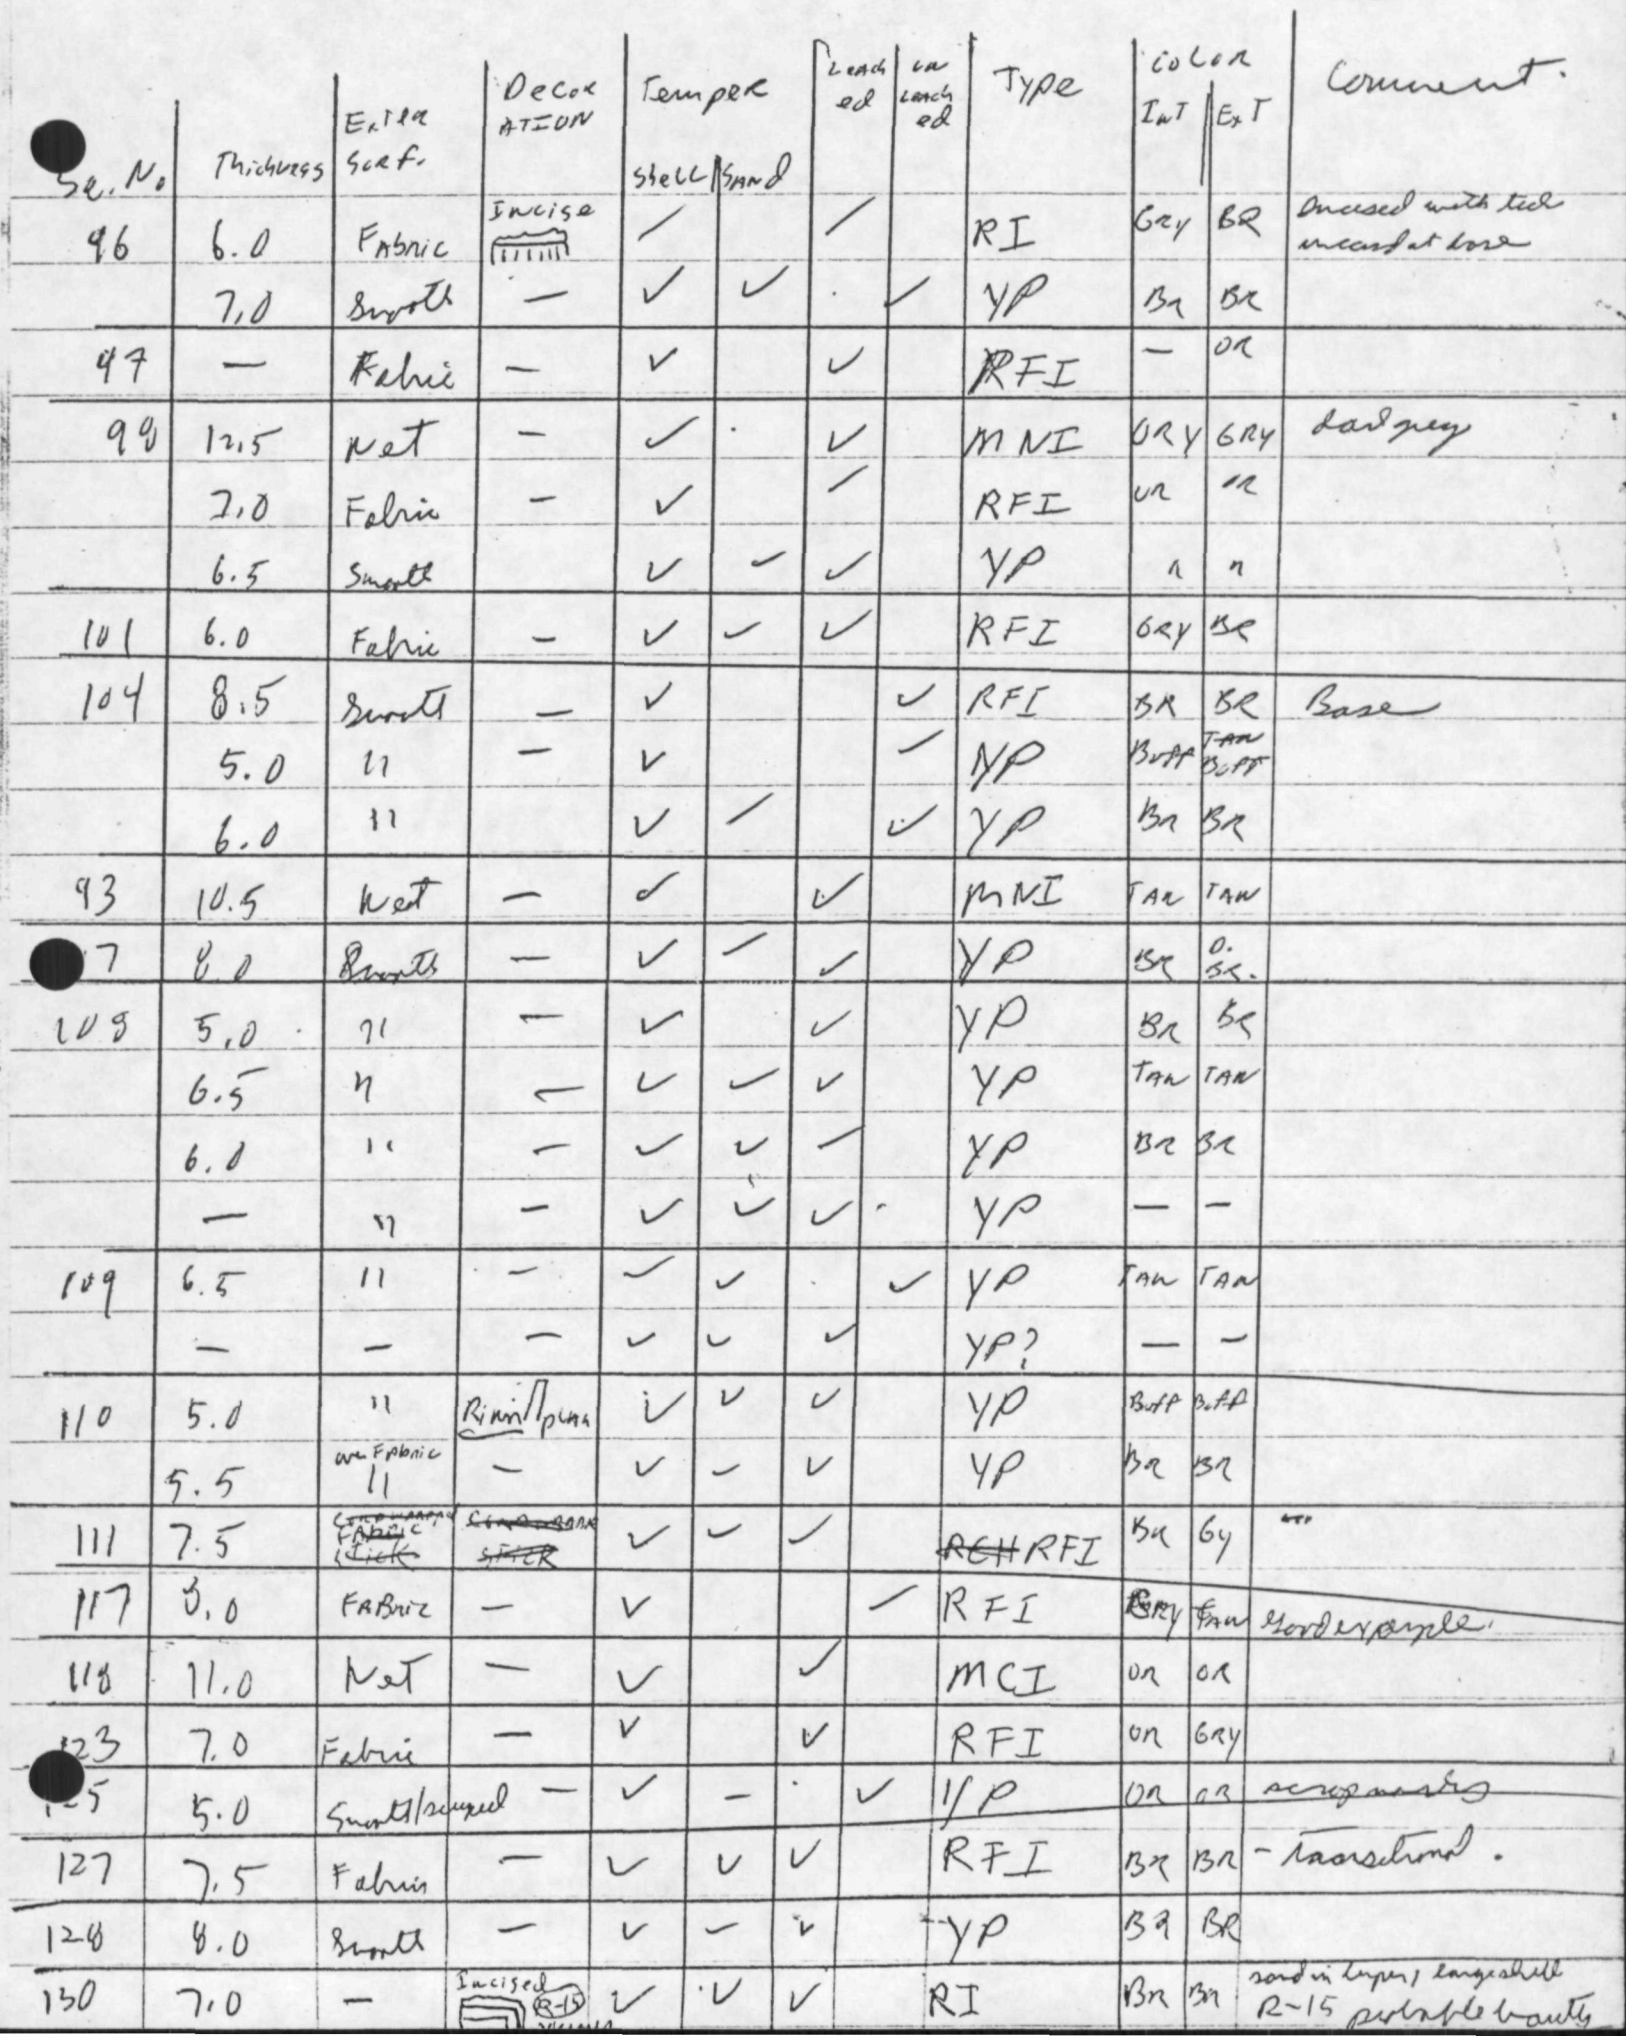 Decor Temper Leach un Type Color Comment.
Exter ATION ed Leach Int Ext
Se. No. Thickness Surf. Shell Sand ed
96 6.0 Fabric Incise / / RI Gry BR Incised with
incised at base
7.0 Smooth — ✓ ✓ ✓ YP Br BR
97 — Fabric — ✓ ✓ RFI — OR
98 12.5 Net — ✓ ✓ MNI GRY GRY dark grey
7.0 Fabric — ✓ / RFI OR OR
6.5 Smooth ✓ ✓ ✓ YP " "
101 6.0 Fabric — ✓ ✓ ✓ RFI GRY BR
104 8.5 Smooth — ✓ ✓ RFI BR BR Base
5.0 " — ✓ ✓ YP Buff TAN
Buff
6.0 " ✓ / ✓ YP Br BR
93 10.5 Net — ✓ ✓ MNI TAN TAN
7 8.0 Smooth — ✓ / ✓ YP BR D.
BR.
108 5.0 " — ✓ ✓ YP BR BR
6.5 " — ✓ ✓ ✓ YP TAN TAN
6.0 " — ✓ ✓ / YP BR BR
— " — ✓ ✓ ✓ YP — —
109 6.5 " — ✓ ✓ ✓ YP TAN TAN
— — — ✓ ✓ ✓ YP? — —
110 5.0 " Rim plain ✓ ✓ ✓ YP Buff Buff
over Fabric
5.5 " — ✓ — ✓ YP BR BR
111 7.5 FABRIC STICK ✓ ✓ ✓ RCH RFI BR Gy
Stick
117 8.0 FABric — ✓ / RFI GRY TAN Good example.
118 11.0 Net — ✓ ✓ MCI OR OR
123 7.0 Fabric — ✓ ✓ RFI OR GRY
5 5.0 Smooth/scraped — ✓ — ✓ YP OR OR scrap marks
127 7.5 Fabric — ✓ ✓ ✓ RFI BR BR - Transitional.
128 8.0 Smooth — ✓ — ✓ YP BR BR
130 7.0 — Incised R-15 ✓ ✓ ✓ RI BR BR sand in temper, large shell
R-15 probable